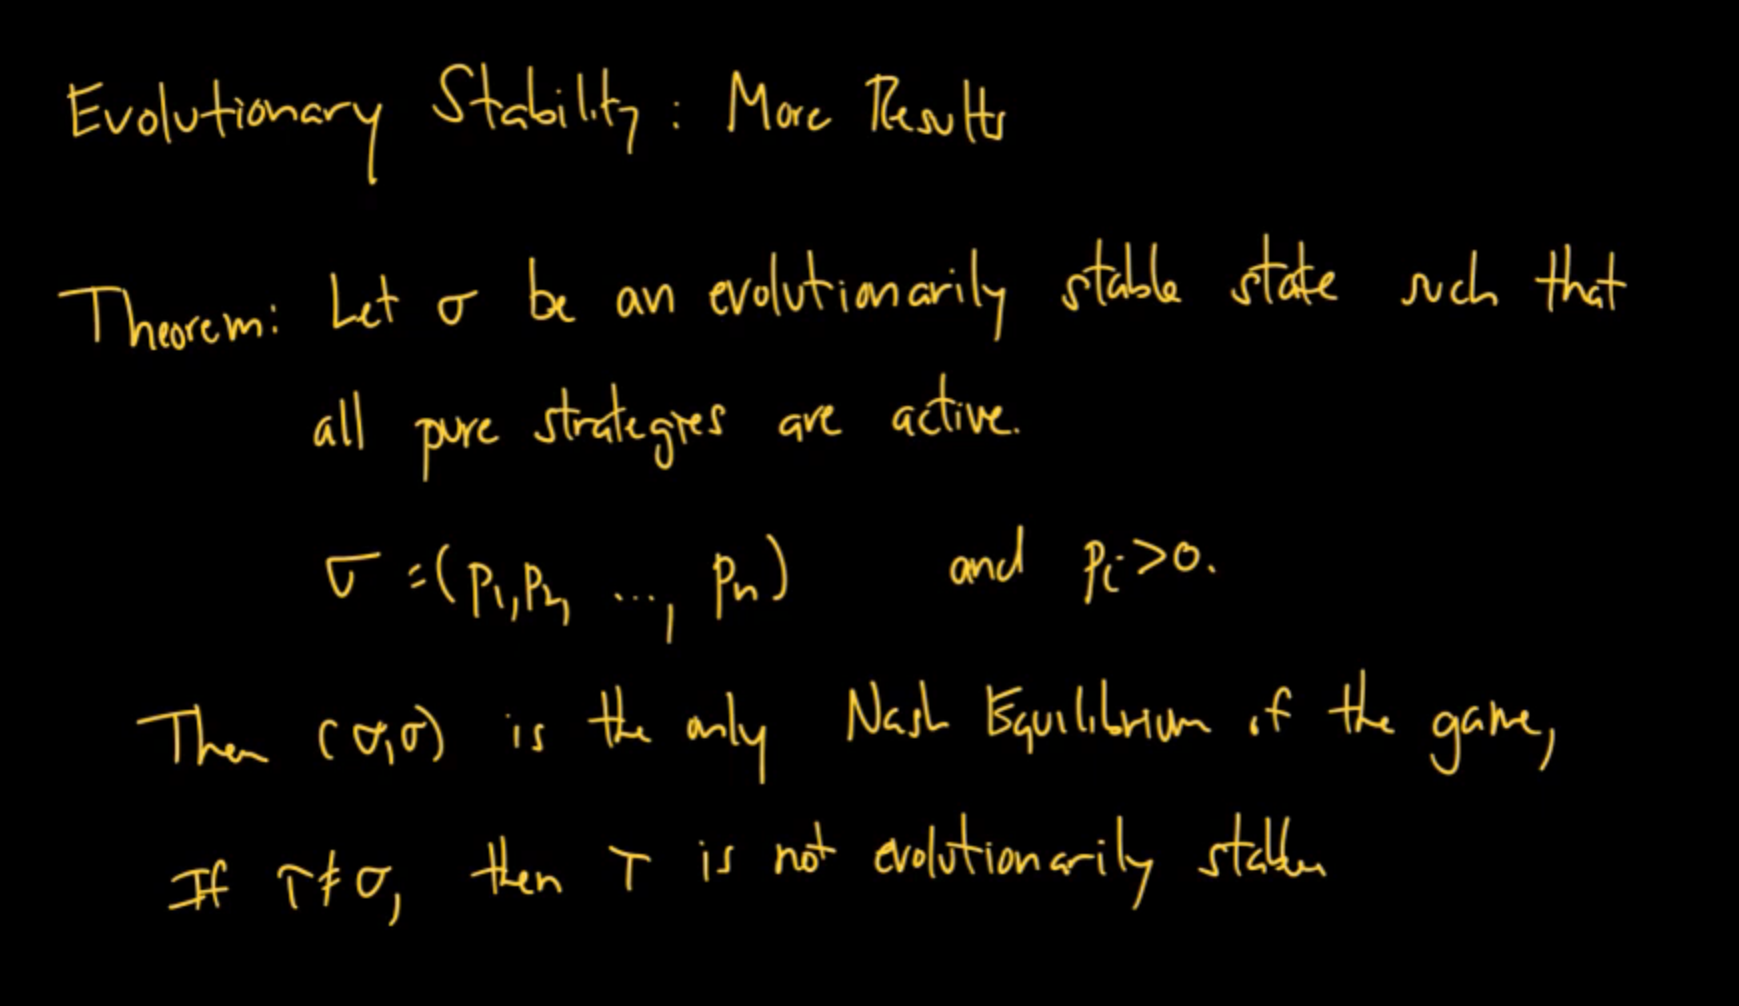 Evolutionary Stability: More Results
Theorem: Let σ be an evolutionarily stable state such that
all pure strategies are active.
σ = (p₁, p₂, ..., pₙ) and pᵢ > 0.
Then (σ, σ) is the only Nash Equilibrium of the game,
If τ ≠ σ, then τ is not evolutionarily stable